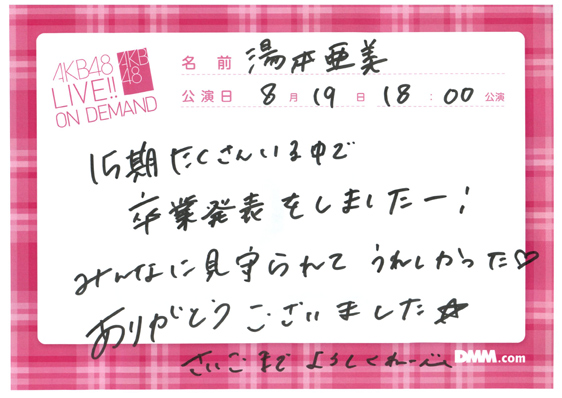 AKB48
LIVE!!
ON DEMAND
AKB
48
名前 湯本亜美
公演日 8月19日 18:00公演
15期たくさんいる中で
卒業発表をしましたー!
みんなに見守られてうれしかった♡
ありがとうございました☆
さいごまでよろしくねー
DMM.com